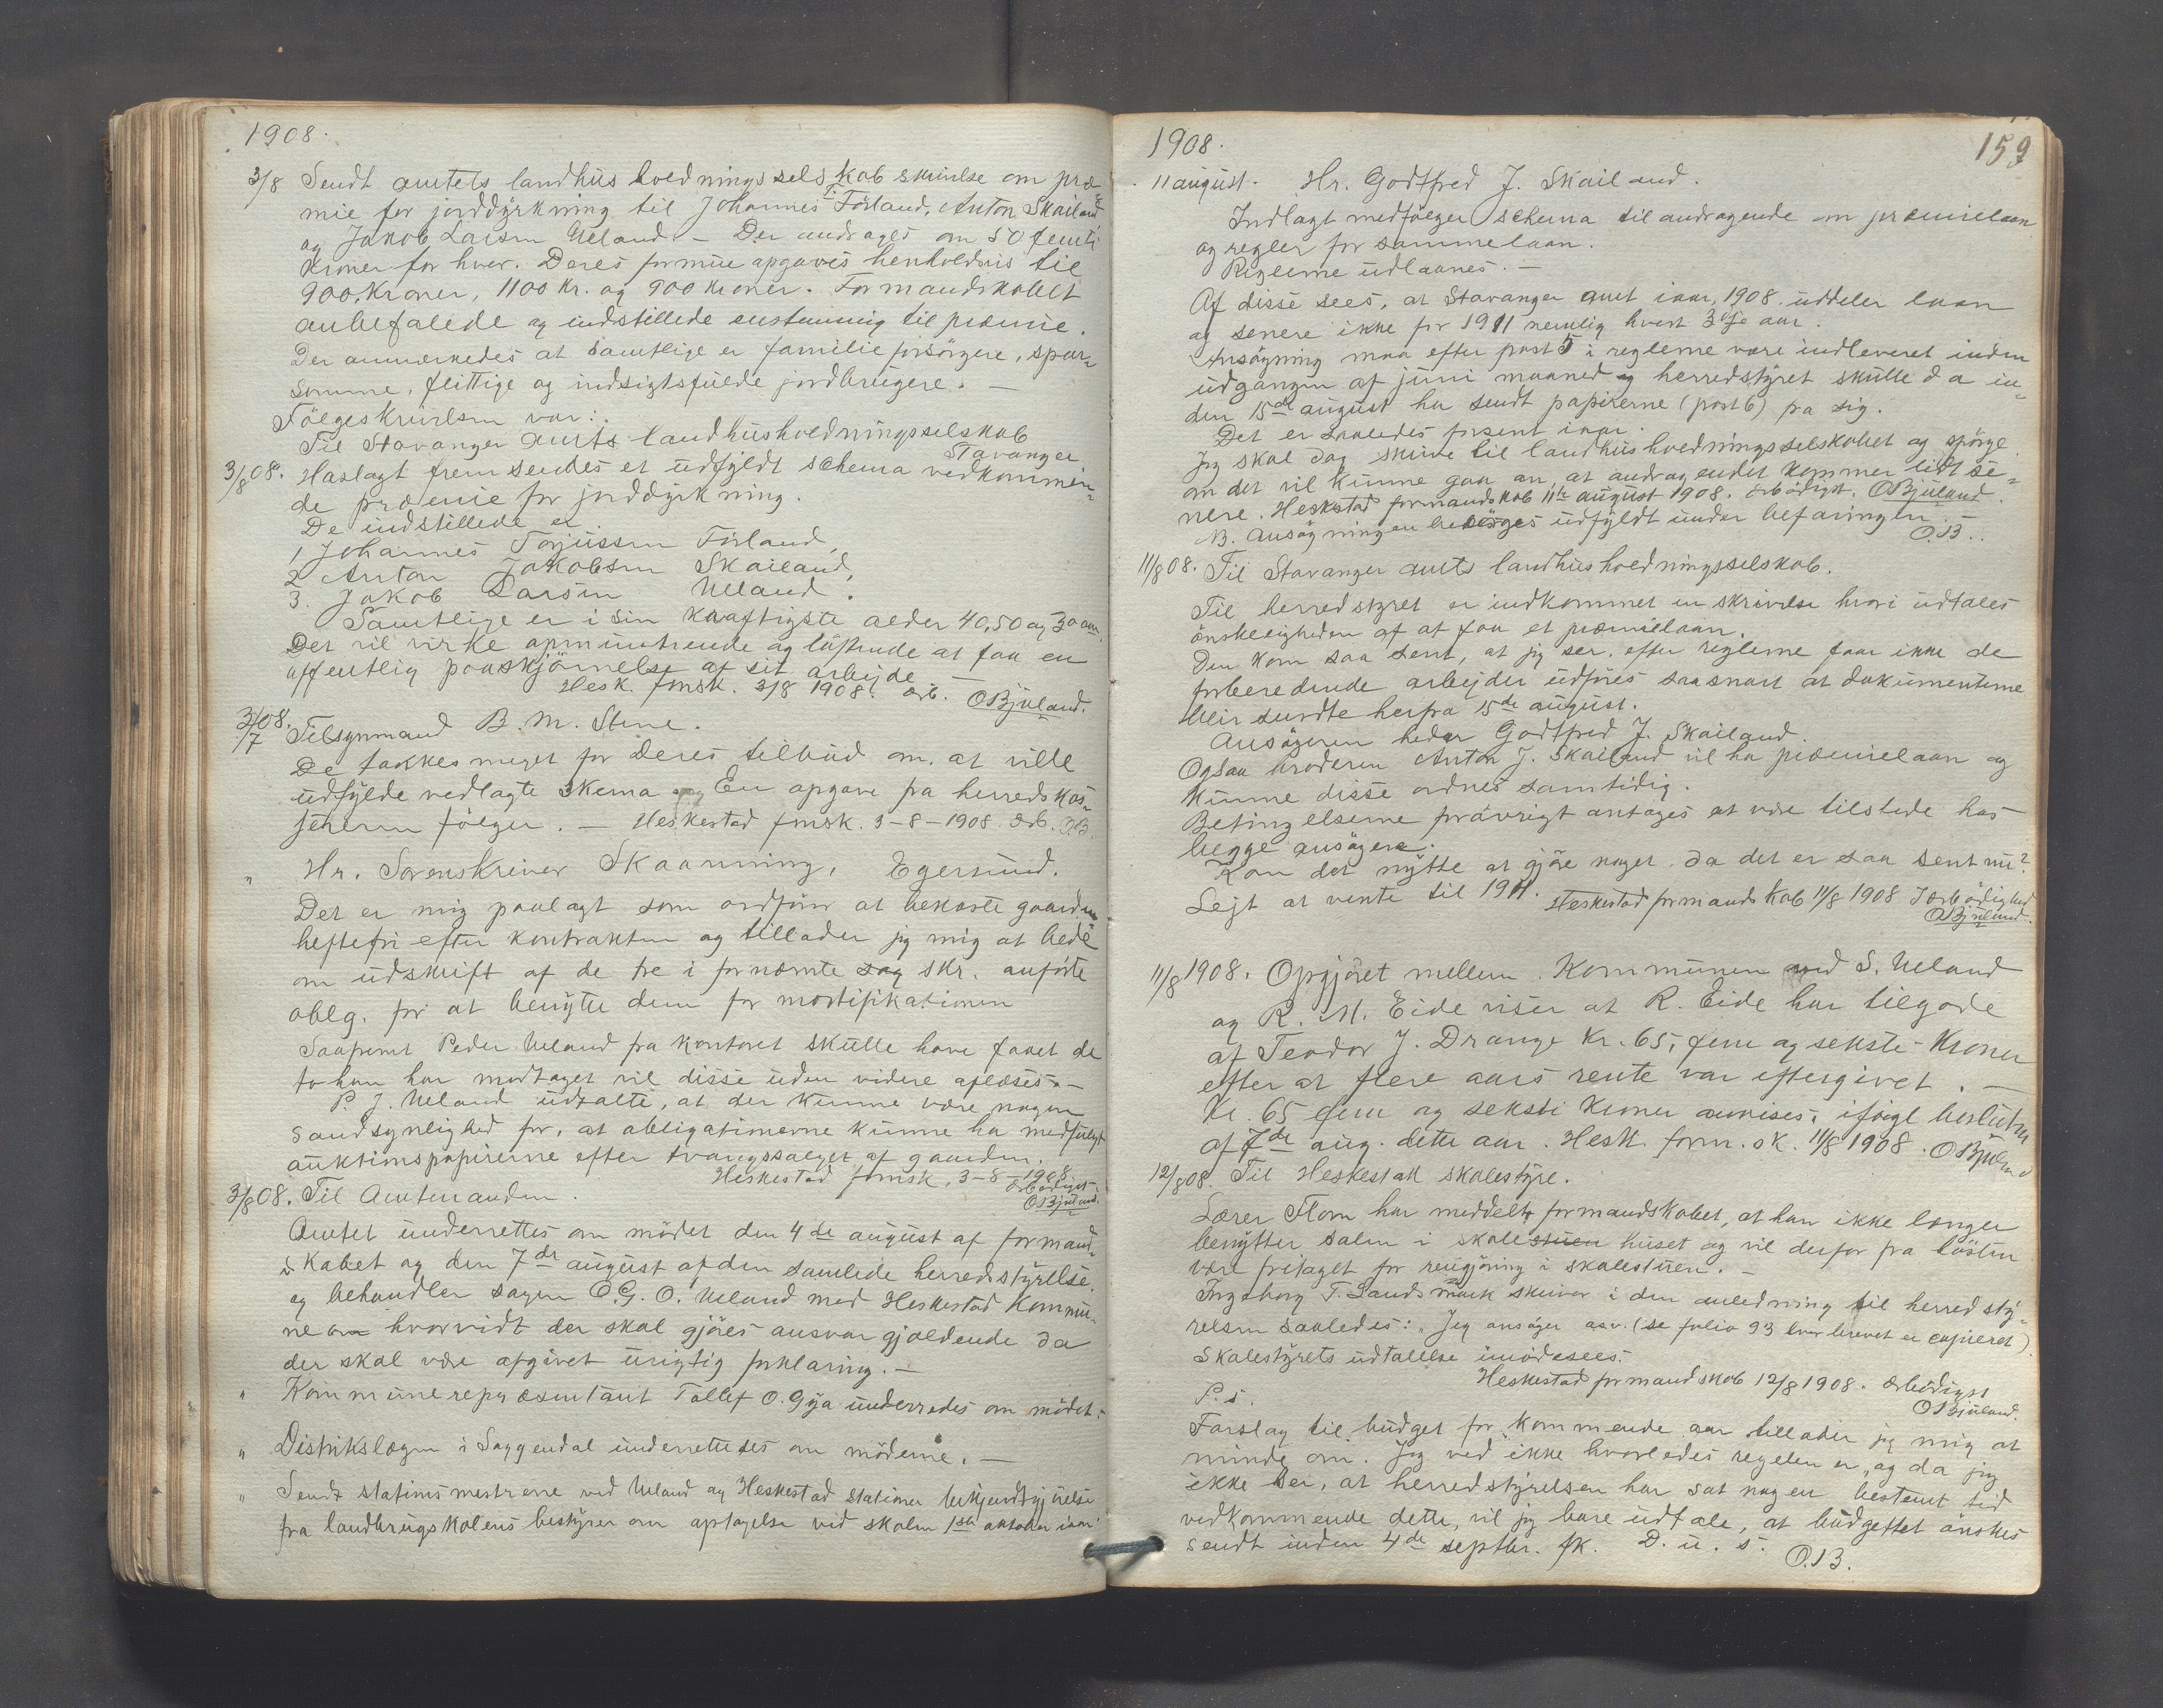 1908.
3/8 Sendt amtets landhusholdningsselskab skrivelse om præ-
mie for jorddyrkning til Johannes T. Förland, Anton Skailand
og Jakob Larsen Ueland. – Der andrages om 50 femti
kroner for hver. Deres formue opgaves henholdsvis til
900 kroner, 1100 kr. og 900 kroner. Formandskabet
anbefalede og indstillede enstemmig til præmie.
Der anmerkedes at samtlige er familieforsörgere, spar-
somme, flittige og indsigtsfulde jordbrugere. –
Fölgeskrivelsen var:
Til Stavanger amts landhusholdningsselskab
Stavanger
3/8 08. Haslagt fremsendes et udfyldt schema vedkommen-
de præmie for jorddyrkning.
De indstillede er
1, Johannes Torjussen Förland,
2 Anton Jakobsen Skailand,
3. Jakob Larsen Ueland.
Samtlige er i sin kraftigste alder 40, 50 og 30 aar.
Det vil virke opmuntrende og löftende at faa en
offentlig paaskjönnelse af sit arbeide –
Hesk. fmsk. 3/8 1908. ærb. OBjuland.
3/7 08. Tilsynmand B. M. Stene.
De takkes meget for Deres tilbud om at ville
udfylde vedlagte skema En opgave fra herredskas-
sereren fölger. – Heskestad fmsk. 3-8-1908 ærb. O.B.
" Hr. Sorenskriver Skaanning, Egersund.
Det er mig paalagt som ordförer at bekoste gaarden
heftefri efter kontrakten og tillader jeg mig at bede
om udskrift af de tre i fornævnte sag skr. anförte
oblg. for at benytte dem for mortifikationen
Saafremt Peder Ueland fra kontoret skulle have faaet de
to han har modtaget vil disse uden videre aflæses. –
P. J. Ueland udtalte, at der kunne være nogen
sandsynlighed for, at obligationerne kunne ha medfulgt
auktionspapirerne efter tvangssalget af gaarden.
Heskestad fmsk. 3-8-1908
Ærbödigst
OBjuland.
3/8 08. Til Amtmanden.
Amtet underrettes om mödet den 4de august af formand-
skabet og den 7de august af den samlede herredsstyrelse
og behandler sagen O.G. O. Ueland mod Heskestad kommu-
ne om hvorvidt der skal gjöres ansvar gjældende da
der skal være afgivet urigtig forklaring. –
" Kommunerepræsentant Tollef O. Gya underredes om mödet.
" Distrikslægen i Soggendal underrettedes om möderne. –
" Sendt stationsmestrene ved Ueland og Heskestad stationer bekjendtgjörelse
fra landbrugskolens bestyrer om optagelse ved skolen 1ste oktober iaar
1908. 159
11 august. Hr. Godtfred J. Skailand.
Indlagt medfölger schema til andragende om præmielaan
og regler for sammelaan.
Reglerne udlaanes. –
Af disse sees, at Stavanger amt iaar, 1908. uddeler laan
og senere ikke för 1911 nemlig hvert 3dje aar.
Ansögning maa efter post 5 i reglerne være indleveret inden
udgangen af juni maaned og herredstyret skulle da in-
den 15de august ha sendt papirerne (post 6) fra sig.
Det er saaledes forsent iaar.
Jeg skal dog skrive til landhusholdningsselskabet og spörge
om det vil kunne gaa an, at andragendet kommer lidt se-
nere. Heskestad formandskab 11te august 1908. Ærbödigst. OBjuland.
NB. Ansögningen besörges udfyldt under befaringen. –
O.B.
11/8 08. Til Stavanger amts landhusholdningsselskab.
Til herredstyret er indkommet en skrivelse hvori udtales
önskeligheden af at faa et præmielaan.
Den kom saa sent, at jeg ser, efter reglerne faar ikke de
forberedende arbeider udföres saasnart at dokumenterne
blir sendte herfra 15de august.
Ansögeren heder Godtfred J. Skailand.
Ogsaa broderen Anton J. Skailand vil ha præmielaan og
kunne disse ordnes samtidig.
Betingelserne forövrigt antages at være tilstede hos
begge ansögere.
Kan det nytte at gjöre noget da det er saa sent nu?
Lejt at vente til 1911. Heskestad formandskab 11/8 1908 Ærbödighed
OBjuland.
11/8 1908. Opgjöret mellem Kommunen ved S. Ueland
og R. M. Eide viser at R. Eide har tilgode
af Teodor J. Drange kr. 65, fem og sekste kroner
efter at flere aars rente var eftergivet. –
Kr. 65 fem og seksti kroner anvises, ifölge beslutn
af 7de aug. dette aar. Hesk. form. sk. 11/8 1908. OBjuland
12/8 08. Til Heskestad skolestyre.
Lærer Flom har meddelt formandskabet, at han ikke længer
benytter salen i skolestuen huset og vil derfor fra hösten
være fritaget for rengjöring i skolestuen. –
Ingeborg T. Sandsmark skriver i den anledning til herredsty-
relsen saaledes: "Jeg ansöger osv. (se folio 93 hvor brevet er copieret).
Skolestyrets udtalelse imödesees.
Heskestad formandskab 12/8 1908. Ærbödigst
OBjuland.
P.s.
Forslag til budget for kommende aar tillader jeg mig at
minde om. Jeg ved ikke hvorledes regelen er, og da jeg
ikke ser, at herredstyrelsen har sat nogen bestemt tid
vedkommende dette, vil jeg bare udtale, at budgettet önskes
sendt inden 4de septbr. fk. D. u. s.
O.B.